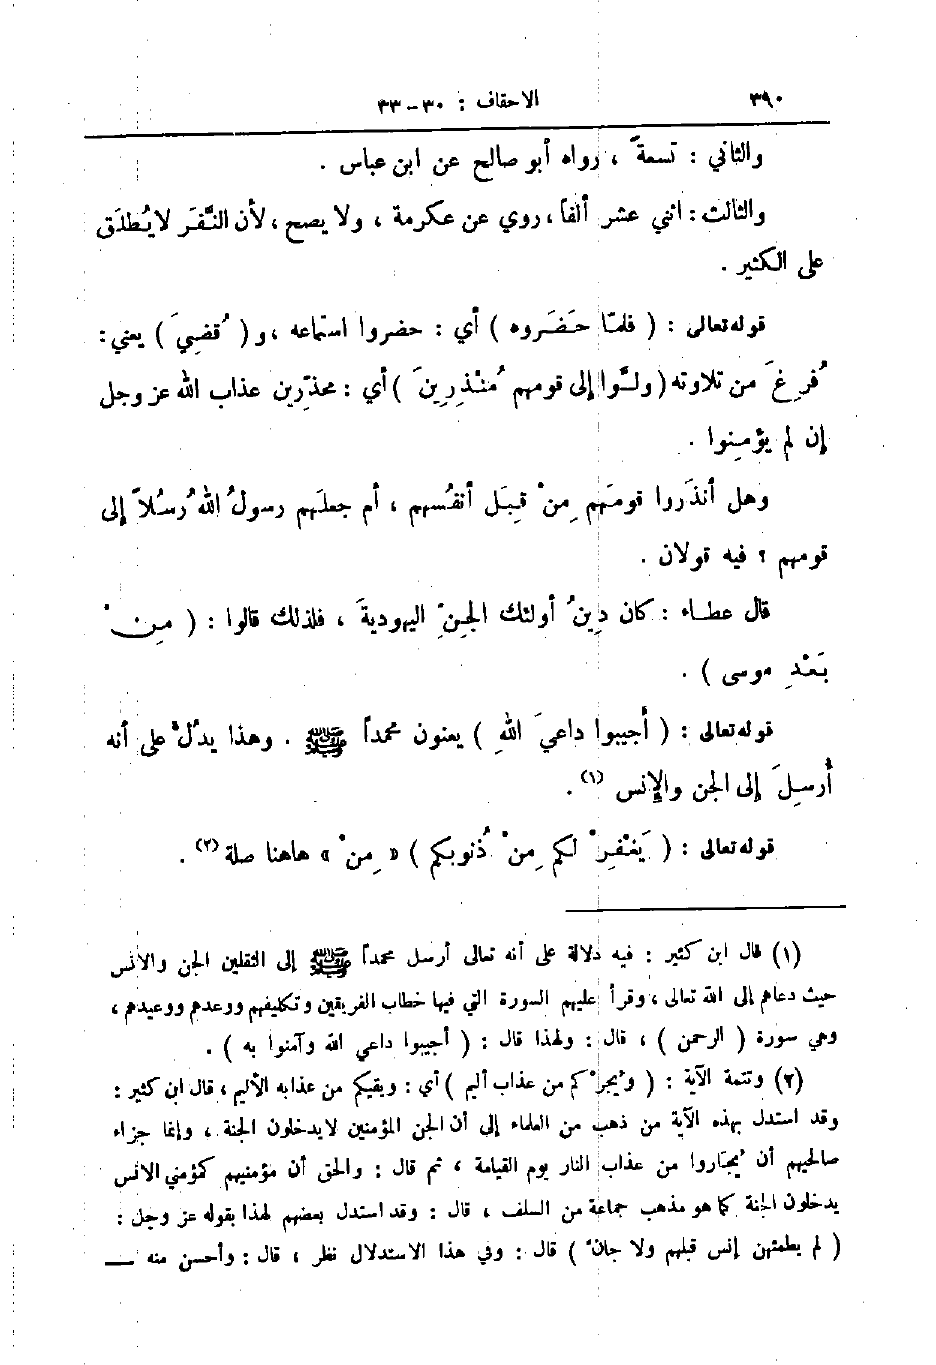 ٣٩٠ الاحقاف : ٣٠-٣٣
والثاني : تسعةً ، رواه أبو صالح عن ابن عباس .
والثالث : اثني عشر ألفاً ، روي عن عكرمة ، ولا يصح ، لأن النَّفَر لا يُطلَق
على الكثير .
قوله تعالى : ( فلمّا حَضَروه ) أي : حضروا استماعه ، و ( قُضِيَ ) يعني :
فُرِغَ من تلاوته ( ولَّوا إلى قومهم مُنْذِرِينَ ) أي : محذّرين عذاب الله عز وجل
إن لم يؤمِنوا .
وهل أنذَروا قومَهم مِنْ قِبَل أنفُسهم ، أم جعلَهم رسولُ الله رُسُلاً إلى
قومهم ؟ فيه قولان .
قال عطـاء : كان دِينُ أولئك الجِنِّ اليهوديةَ ، فلذلك قالوا : ( مِنْ
بَعْدِ موسى ) .
قوله تعالى : ( أجيبوا داعيَ اللهِ ) يعنون محمداً ﷺ . وهذا يدلّ على أنه
أُرسِلَ إلى الجن والإنس (١) .
قوله تعالى : ( يَغْفِرْ لكم مِنْ ذُنوبكم ) « مِنْ » هاهنا صلة (٢) .
(١) قال ابن كثير : فيه دلالة على أنه تعالى أرسل محمداً ﷺ إلى الثقلين الجن والانس
حيث دعاهم إلى الله تعالى ، وقرأ عليهم السورة التي فيها خطاب الفريقين وتكليفهم ووعدهم ووعيدهم ،
وهي سورة ( الرحمن ) ، قال : ولهذا قال : ( أجيبوا داعي الله وآمنوا به ) .
(٢) وتتمة الآية : ( ويُجِرْكم من عذاب أليم ) أي : ويقيكم من عذابه الأليم ، قال ابن كثير :
وقد استدل بهذه الآية من ذهب من العلماء إلى أن الجن المؤمنين لا يدخلون الجنة ، وإنما جزاء
صالحيهم أن يُجاروا من عذاب النار يوم القيامة ، ثم قال : والحق أن مؤمنيهم كمؤمني الانس
يدخلون الجنة كما هو مذهب جماعة من السلف ، قال : وقد استدل بعضهم لهذا بقوله عز وجل :
( لم يطمثهن إنس قبلهم ولا جانٌ ) قال : وفي هذا الاستدلال نظر ، قال : وأحسن منه —